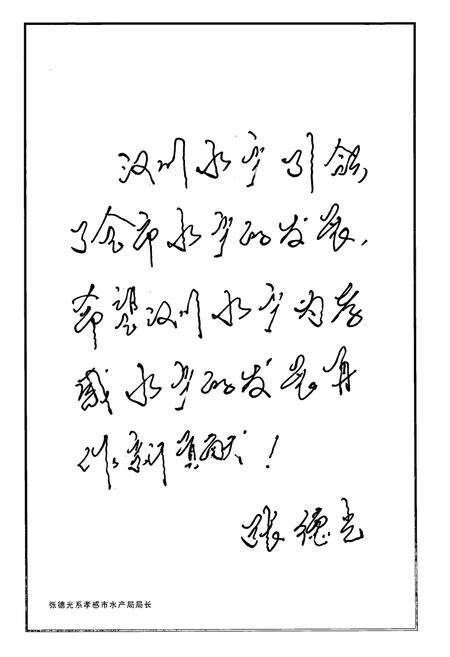 汉川水产引领
了全市水产的发展，
希望汉川水产为孝
感水产的发展再
作新贡献！
张德光
张德光系孝感市水产局局长